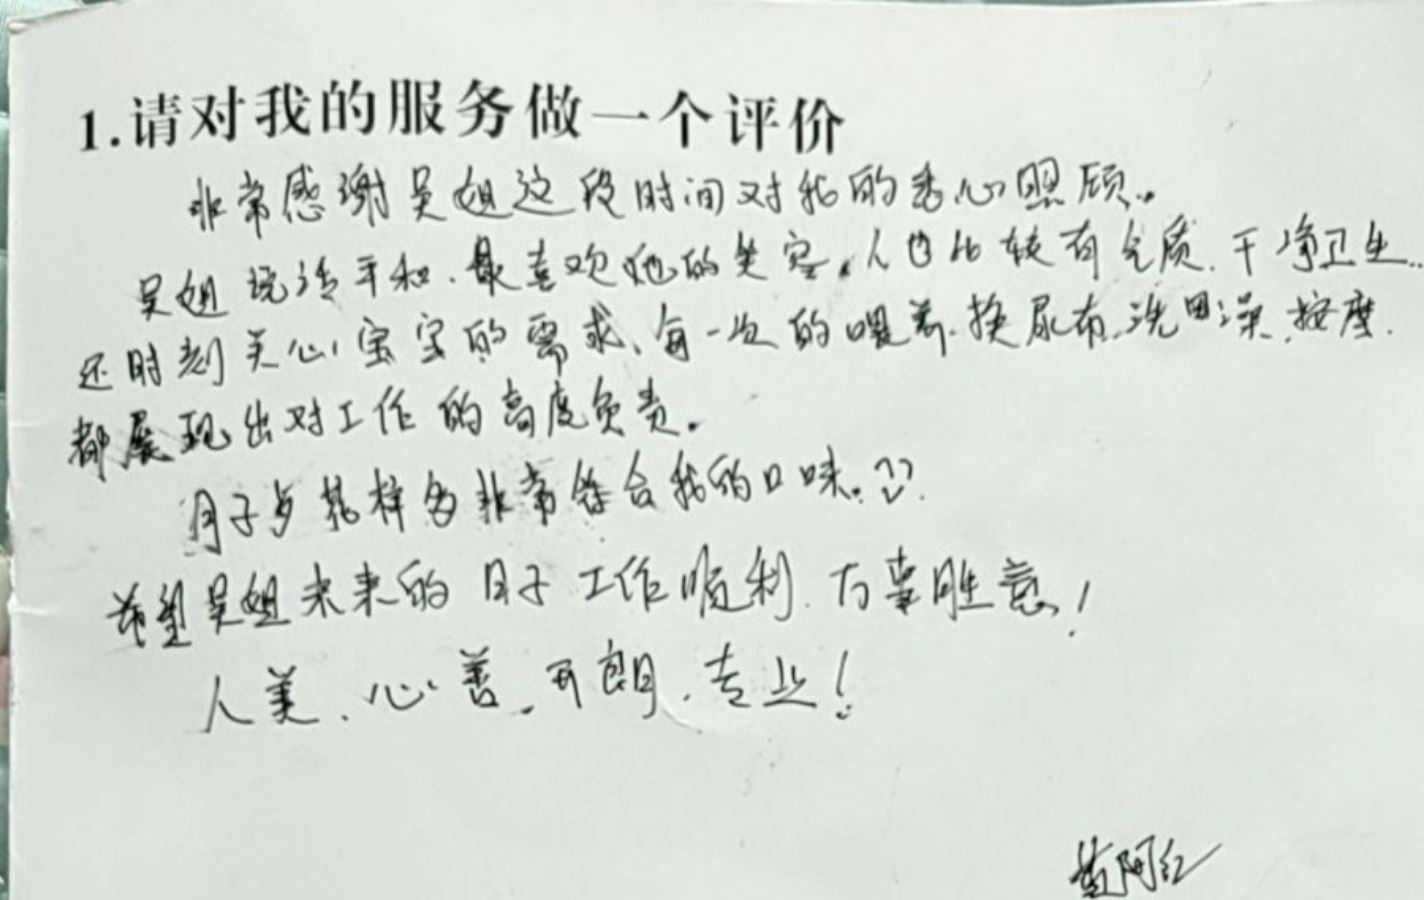 1.请对我的服务做一个评价
非常感谢吴姐这段时间对我的悉心照顾。
吴姐说话平和.最喜欢她的笑容.人也比较有气质.干净卫生..
还时刻关心宝宝的需求、每一次的喂养.换尿布.洗澡.按摩.
都展现出对工作的高度负责。
月子 花样多非常符合我的口味.
希望吴姐未来的月子工作顺利.万事胜意!
人美、心善.开朗.专业!
黄阿红